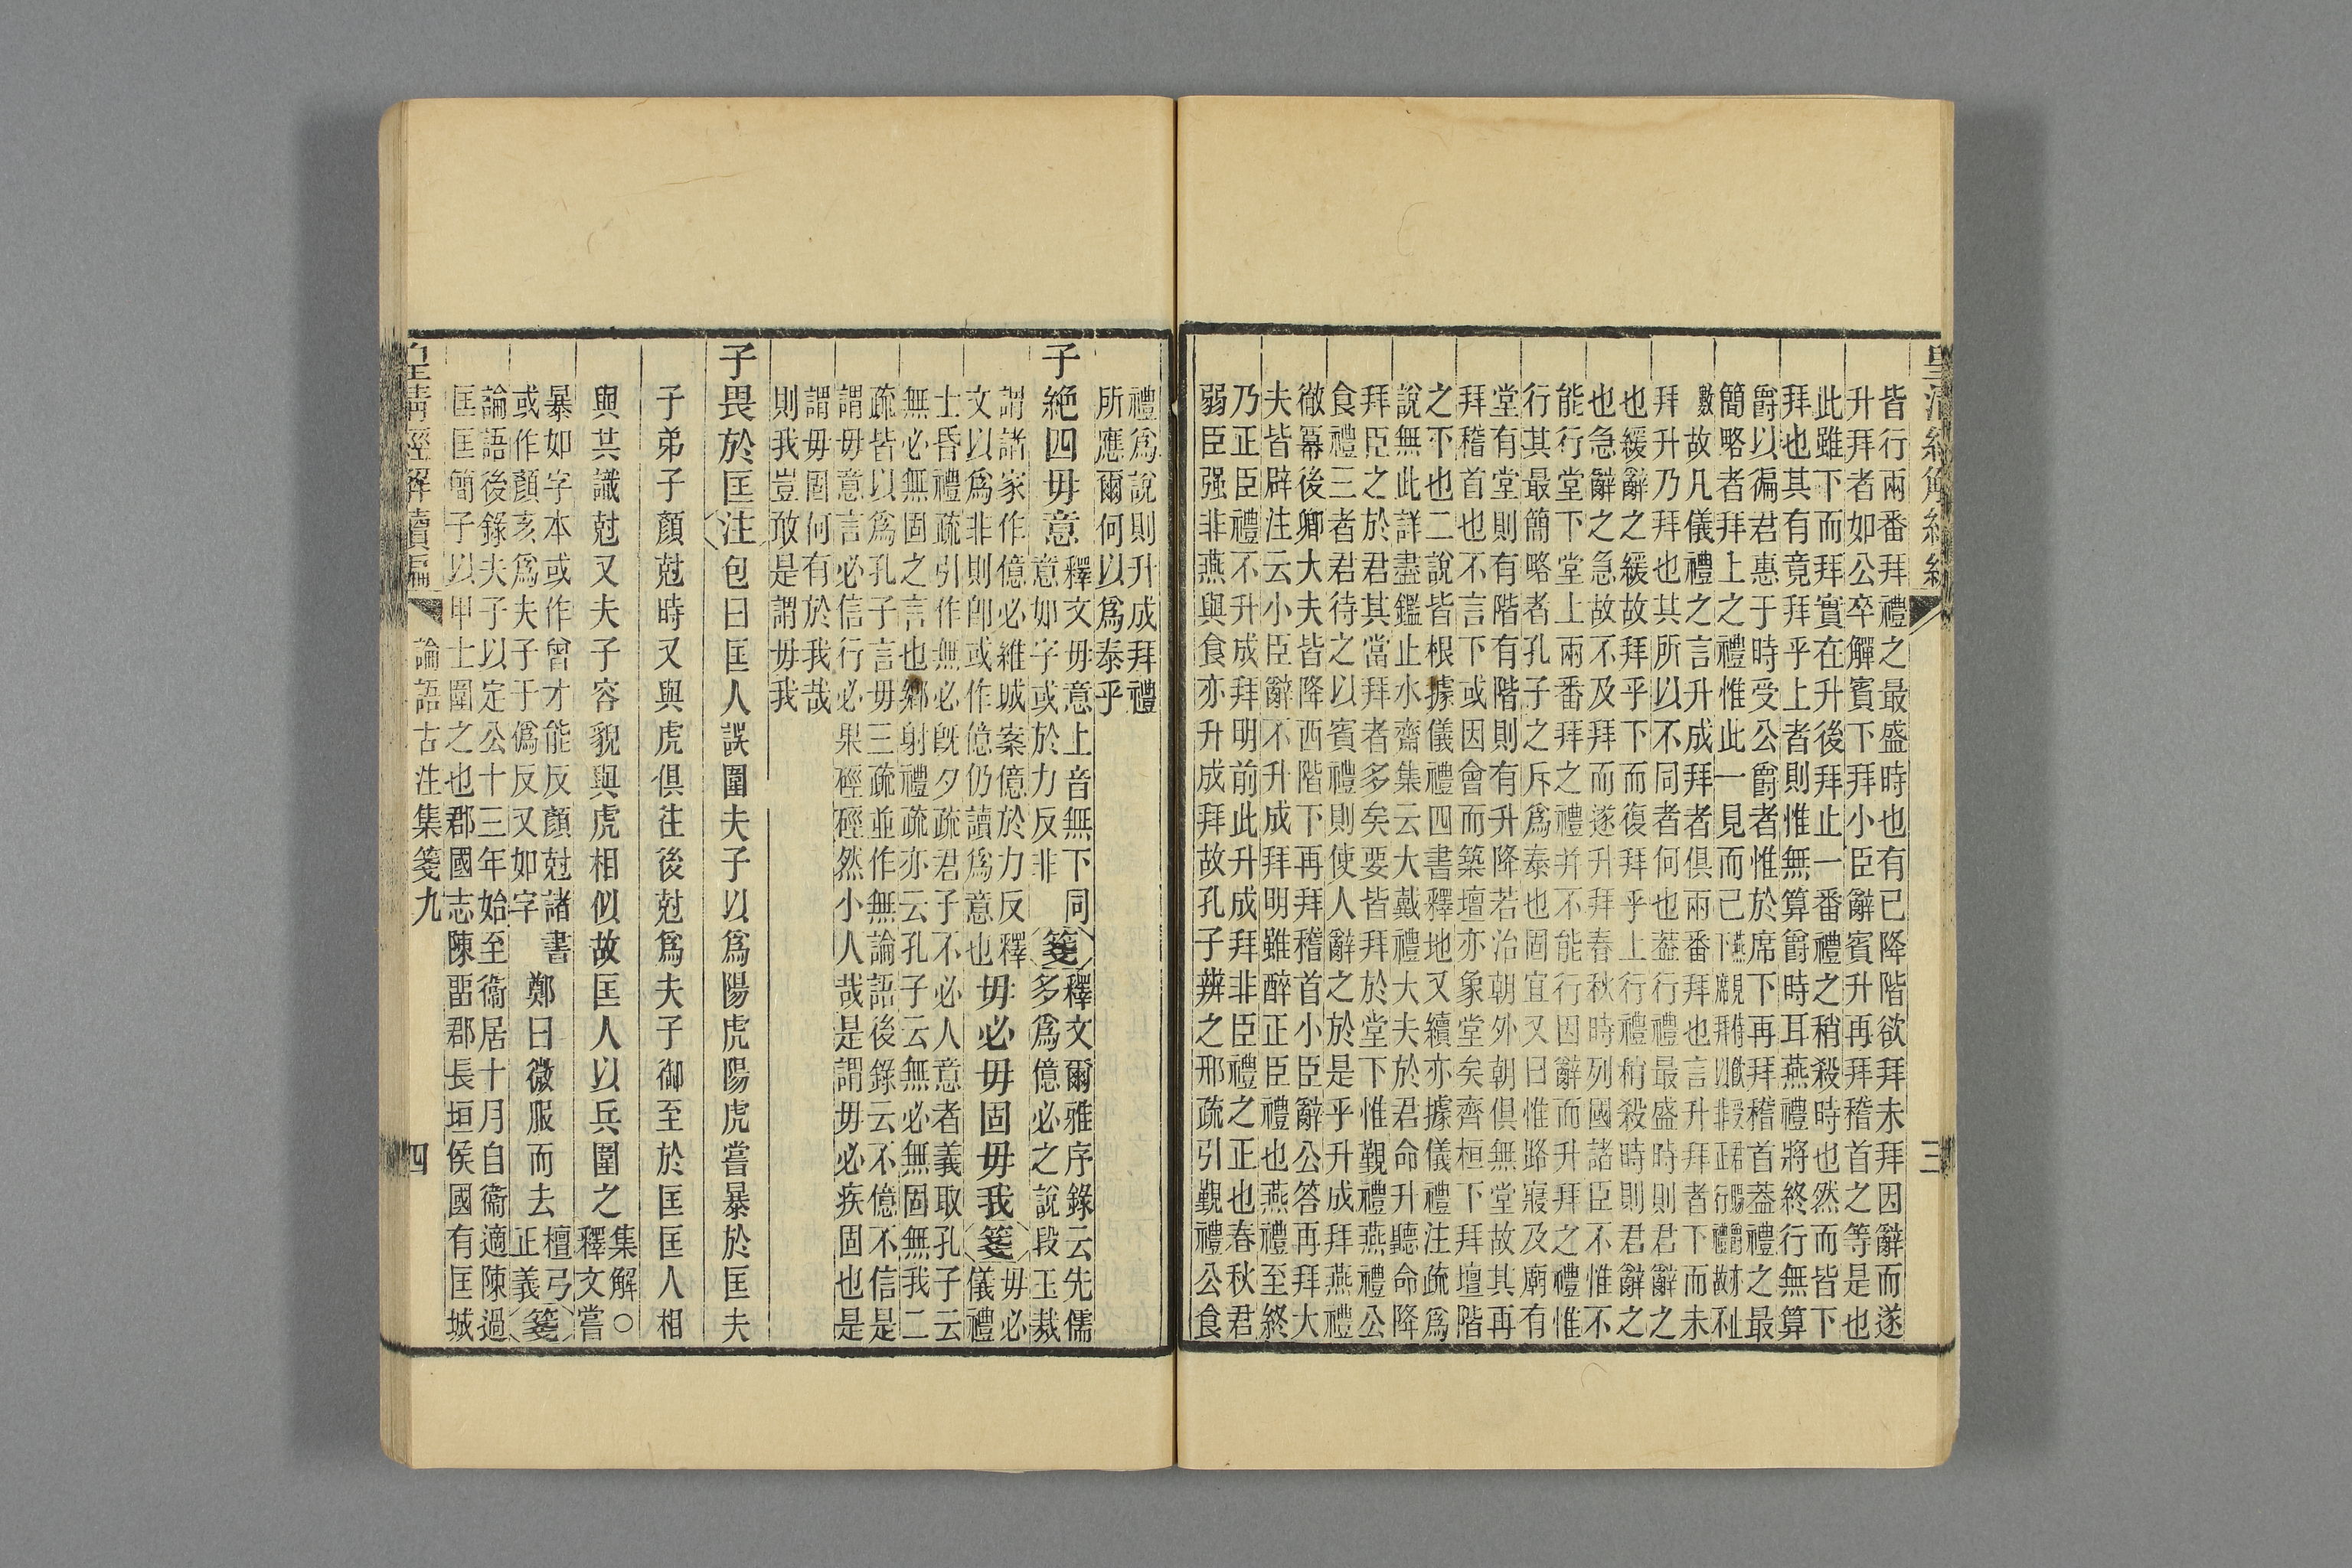 皇清經解續編
三
皆行兩番拜禮之最盛時也有已降階欲拜未拜因辭而遂
升拜者如公卒觶賓下拜小臣辭賓升再拜稽首之等是也
此雖下而拜實在升後拜止一番禮之稍殺時也然而皆下
拜也其有竟拜乎上者則惟無算爵時耳燕禮將終行無算
爵以徧君惠于時受公爵者惟於席下再拜稽首葢禮之最
簡略者拜上之禮惟此一見而已
數故凡儀禮之言升成拜者俱兩番拜也言升拜者下而未
拜升乃拜也其所以不同者何也葢行禮最盛時則君辭之
也緩辭之緩故拜乎下而復拜乎上行禮稍殺時則君辭之
也急辭之急故不及拜而遂升拜春秋時列國諸臣不惟不
能行堂下堂上兩番拜之禮并不能行因辭而升拜之禮惟
行其最簡略者孔子之斥爲泰也固宜又曰惟路寢及廟有
堂有堂則有階有階則有升降若治朝外朝俱無堂故其再
拜稽首也不言下或因會而築壇亦象堂矣齊桓下拜壇階
之下也二說皆根據儀禮四書釋地又續亦據儀禮注疏爲
說無此詳盡鑑止水齋集云大戴禮大夫於君命升聽命降
拜臣之於君其當拜者多矣要皆拜於堂下惟覲禮燕禮公
食禮三者君待之以賓禮則使人辭之於是乎升成拜燕禮
徹冪後卿大夫皆降西階下再拜稽首小臣辭公答再拜大
夫皆辟注云小臣辭不升成拜明雖醉正臣禮也燕禮至終
乃正臣禮不升成拜明前此升成拜非臣禮之正也春秋君
弱臣强非燕與食亦升成拜故孔子辨之邢疏引覲禮公食
禮爲說則升成拜禮
所應爾何以爲泰乎
子絶四毋意
釋文毋意上音無下同
意如字或於力反非
箋
釋文爾雅序錄云先儒
多爲億必之說段玉裁
謂諸家作億必維城案億於力反釋
文以爲非則卽或作億仍讀爲意也
毋必毋固毋我
箋
毋必
儀禮
士昏禮疏引作無必旣夕疏君子不必人意者義取孔子云
無必無固之言也鄉射禮疏亦云孔子云無必無固無我二
疏皆以爲孔子言毋三疏並作無論語後錄云不億不信是
謂毋意言必信行必果硜硜然小人哉是謂毋必疾固也是
謂毋固何有於我哉
則我豈敢是謂毋我
子畏於匡
注
包曰匡人誤圍夫子以爲陽虎陽虎嘗暴於匡夫
子弟子顏尅時又與虎俱往後尅爲夫子御至於匡匡人相
與共識尅又夫子容貌與虎相似故匡人以兵圍之
集解○
釋文嘗
暴如字本或作曾才能反顏尅諸書
或作顏亥爲夫子于僞反又如字
鄭曰微服而去
檀弓
正義
箋
論語後錄夫子以定公十三年始至衞居十月自衞適陳過
匡匡簡子以甲士圍之也郡國志陳畱郡長垣侯國有匡城
皇清經解續編
論語古注集箋九
四